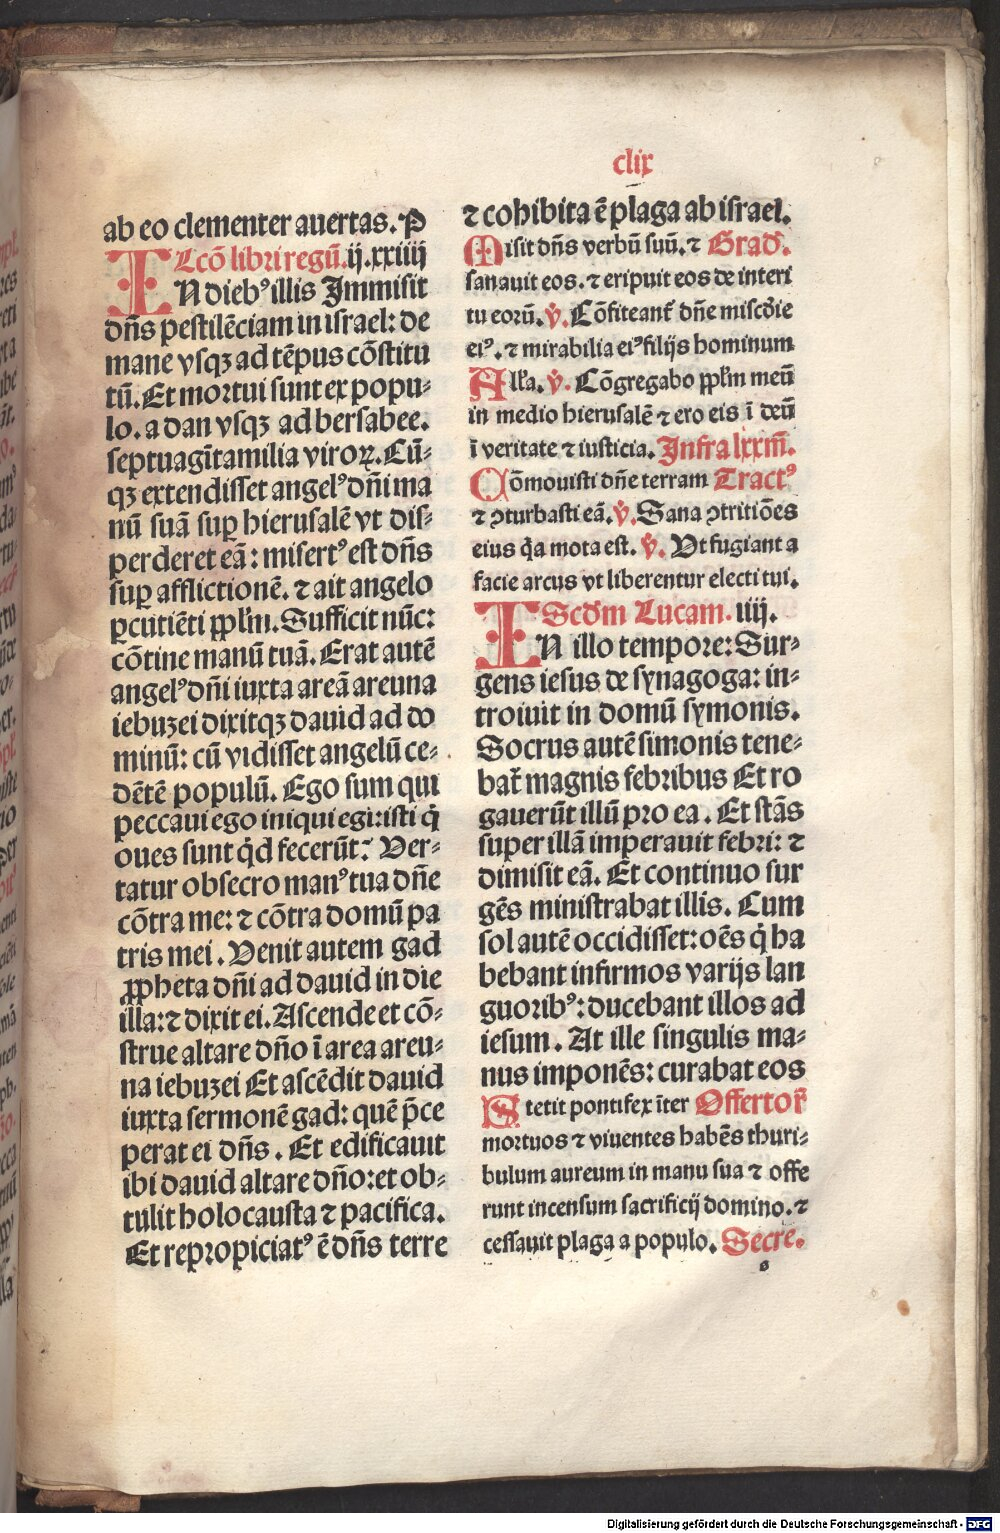 clix
ab eo clementer auertas. P
Lcō libri regū. ij. xxiiij
IN dieb⁹ illis Jmmisit
dn̄s pestilēciam in israel: de
mane vsqꝫ ad tēpus cōstitu
tū. Et mortui sunt ex popu⸗
lo. a dan vsqꝫ ad bersabee.
septuagīta milia viroꝝ. Cū⸗
qꝫ extendisset angel⁹ dn̄i ma
nū suā suꝑ hierusalē vt dis⸗
perderet eā: misert⁹ est dn̄s
suꝑ afflictionē. ⁊ ait angelo
ꝑcutiēti ppl̄m. Sufficit nūc:
cōtine manū tuā. Erat autē
angel⁹ dn̄i iuxta areā areuna
iebuzei dixitqꝫ dauid ad do
minū: cū vidisset angelū ce⸗
dētē populū. Ego sum qui
peccaui ego iniqui egi: isti q̇
oues sunt q̇d fecerūt: Ver⸗
tatur obsecro man⁹ tua dn̄e
cōtra me: ⁊ cōtra domū pa
tris mei. Venit autem gad
ꝓpheta dn̄i ad dauid in die
illa: ⁊ dixit ei. Ascende et cō⸗
strue altare dn̄o ī area areu⸗
na iebuzei Et ascēdit dauid
iuxta sermonē gad: quē p̄ce
perat ei dn̄s. Et edificauit
ibi dauid altare dn̄o: et ob⸗
tulit holocausta ⁊ pacifica.
Et repropiciat⁹ ē dn̄s terre
⁊ cohibita ē plaga ab israel.
Misit dn̄s verbū suū. ⁊ Grad̄.
sanauit eos. ⁊ eripuit eos de interi
tu eorū. ℣. Cōfiteant̄ dn̄e miscd̄ie
ei⁹. ⁊ mirabilia ei⁹ filijs hominum
All̄a. ℣. Cōgregabo ppl̄m meū
in medio hierusalē ⁊ ero eis ī deū
ī veritate ⁊ iusticia. Jnfra lxxm̄.
Cōmouisti dn̄e terram Tract⁹
⁊ ꝯturbasti eā. ℣. Sana ꝯtritiōes
eius q̄a mota est. ℣. Vt fugiant a
facie arcus vt liberentur electi tui.
Scd̄m Lucam. iiij.
IN illo tempore: Sur⸗
gens iesus de synagoga: in⸗
troiuit in domū symonis.
Socrus autē simonis tene⸗
bat̄ magnis febribus Et ro
gauerūt illū pro ea. Et stās
super illā imperauit febri: ⁊
dimisit eā. Et continuo sur
gēs ministrabat illis. Cum
sol autē occidisset: oēs q̇ ha
bebant infirmos varijs lan
guorib⁹: ducebant illos ad
iesum. At ille singulis ma⸗
nus imponēs: curabat eos
Stetit pontifex īter Offertor̄
mortuos ⁊ viuentes habēs thuri⸗
bulum aureum in manu sua ⁊ offe
runt incensum sacrificij domino. ⁊
cessauit plaga a populo. Secre.
o
Digitalisierung gefördert durch die Deutsche Forschungsgemeinschaft - DFG